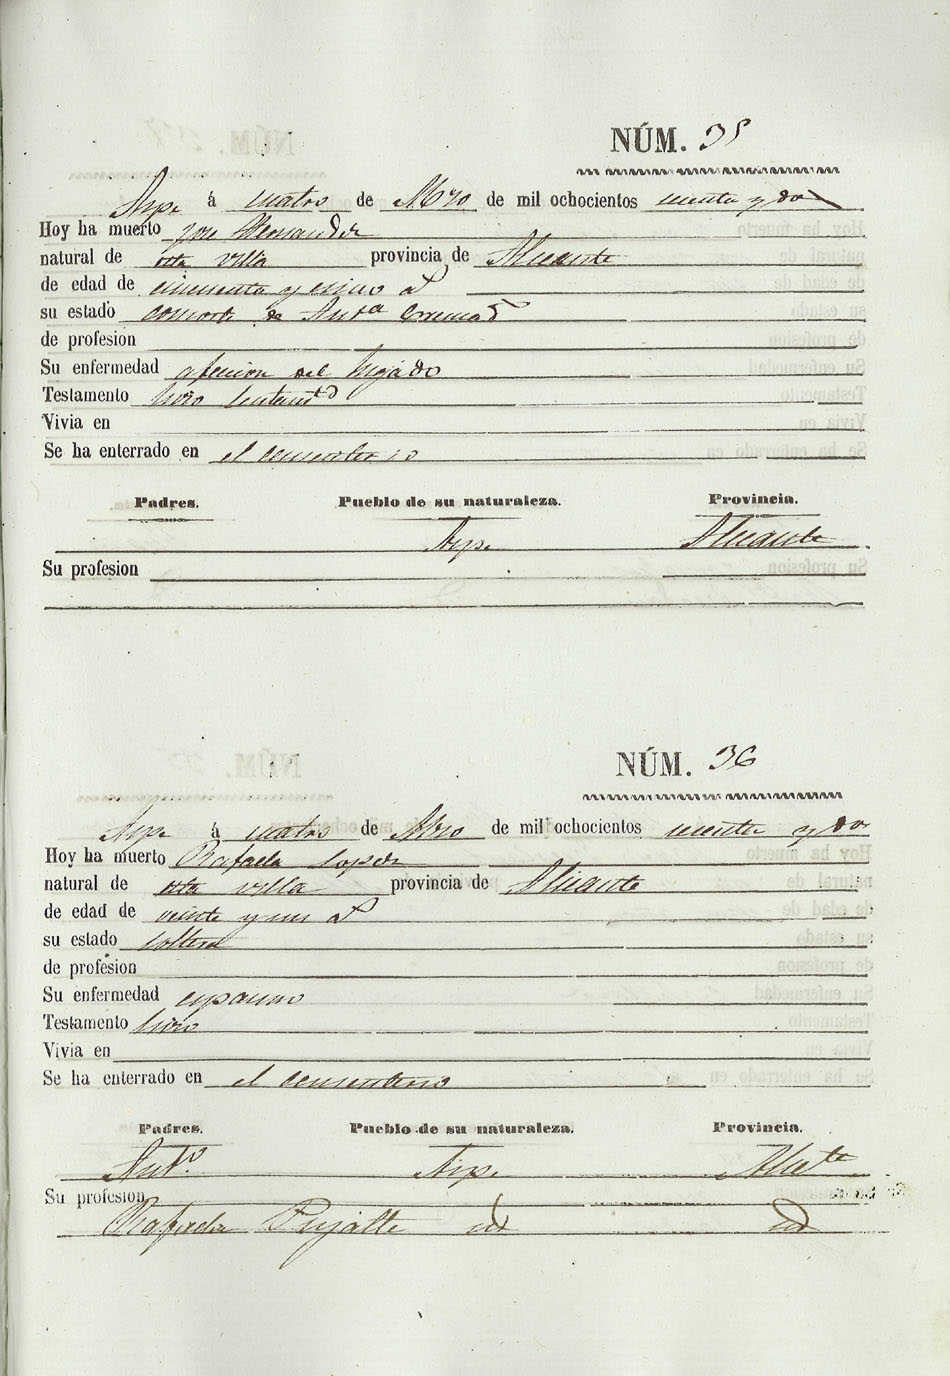 NÚM. 35
Aspe á cuatro de Mzo de mil ochocientos cincuenta y dos
Hoy ha muerto Jose Hernandez
natural de esta villa provincia de Alicante
de edad de cincuenta y cinco a.s
su estado consorte de Ant.a
de profesion
Su enfermedad afeccion del higado
Testamento hizo
Vivia en
Se ha enterrado en el cementerio
Padres. Pueblo de su naturaleza. Provincia.
Aspe Alicante
Su profesion
NÚM. 36
Aspe á cuatro de Mzo de mil ochocientos cincuenta y dos
Hoy ha muerto Rafaela Lopez
natural de esta villa provincia de Alicante
de edad de veinte y un a.s
su estado soltera
de profesion
Su enfermedad espasmo
Testamento hizo
Vivia en
Se ha enterrado en el cementerio
Padres. Pueblo de su naturaleza. Provincia.
Ant.o Aspe Alic.te
Su profesion
Rafaela Pujalte id id